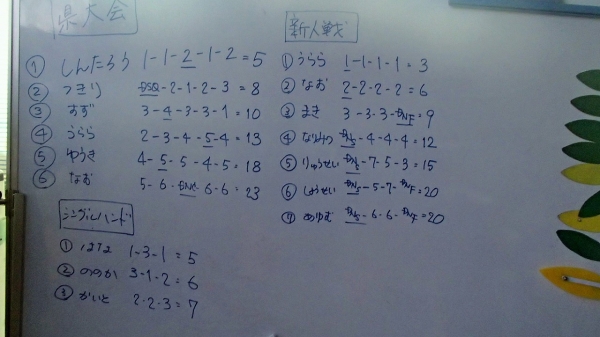 県大会
① しんたろう 1-1-2-1-2=5
② つぎり DSQ-2-1-2-3=8
③ すず 3-4-3-3-1=10
④ うらら 2-3-4-5-4=13
⑤ ゆうき 4-5-5-4-5=18
⑥ なお 5-6-DNC-6-6=23
シングルハンド
① はな 1-3-1=5
② ののか 3-1-2=6
③ かいと 2-2-3=7
新人戦
① うらら 1-1-1-1=3
② なお 2-2-2-2=6
③ まき 3-3-3-DNF=9
④ なりみつ DNS-4-4-4=12
⑤ りゅうせい DNS-7-5-3=15
⑥ しょうせい DNS-5-7-DNF=20
⑦ あゆむ DNS-6-6-DNF=20